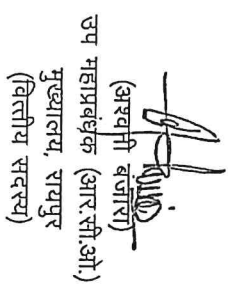 (अश्वनी बंजारा)
उप महाप्रबंधक (आर.सी.ओ.)
मुख्यालय, रायपुर
(वित्तीय सदस्य)